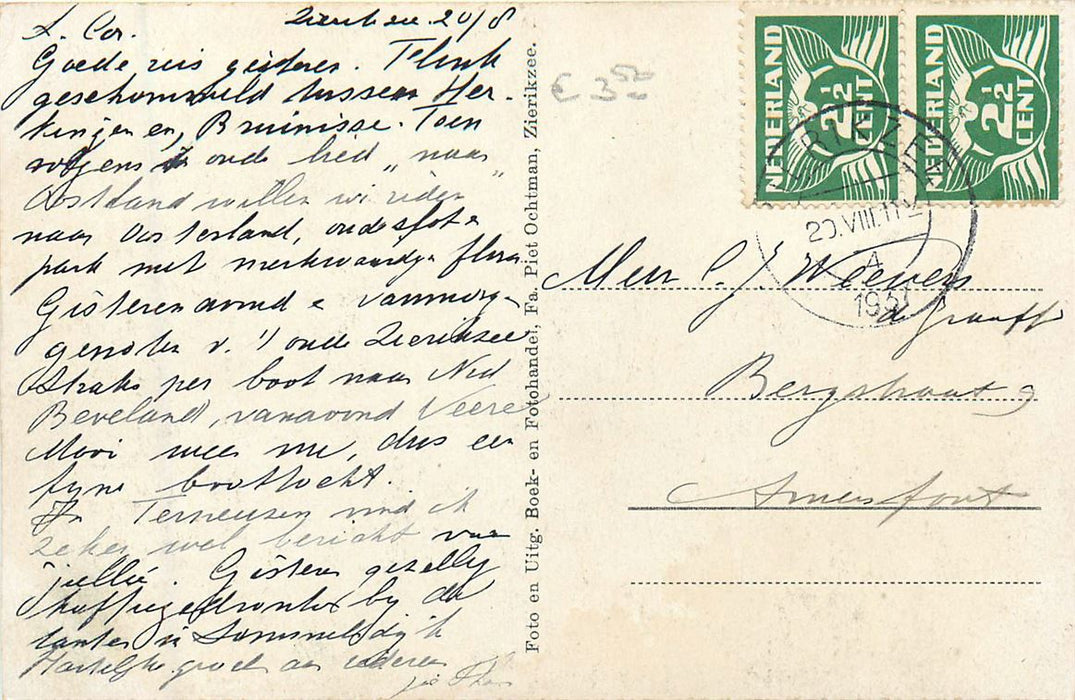 Zierikzee 20/8
L. Cor.
Goede reis gisteren. Flink
geschommeld tussen Her-
kingen en, Bruinisse. Toen
volgens oude lied „naar
Oostland willen wij rijden"
naar Oosterland, oude slot &
park met merkwaardige flora
Gisterenavond & vanmorgen
genoten v. 't oude Zierikzee
Straks per boot naar Nrd
Beveland, vanavond Veere
Mooi weer nu, dus een
fijne boottocht.
In Terneuzen vind ik
zeker wel bericht van
jullie. Gisteren gezellig
koffiegedronken bij de
tantes in Sommelsdijk
Hartelijke groet aan iedereen
Foto en Uitg. Boek- en Fotohandel, Fa. Piet Ochtman, Zierikzee.
€ 3 50
NEDERLAND
2½
CENT
NEDERLAND
2½
CENT
ZIERIKZEE
20.VIII.11 V
4
1937
Meur C. J. Weevers
de Graaff
Bergstraat 9
Amersfoort